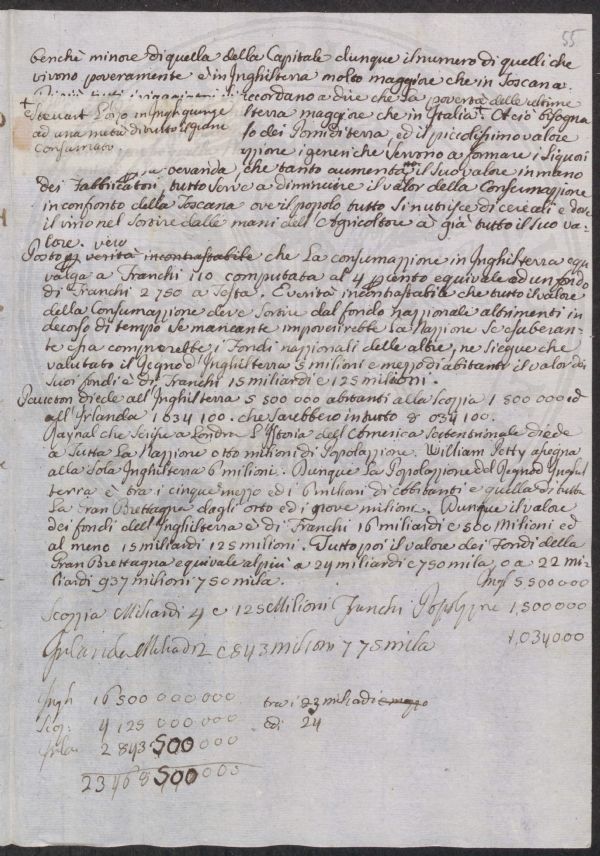 55
benchè minore di quella della Capitale dunque il numero di quelli che
vivono poveramente è in Inghilterra molto maggiore che in Toscana.
ricordano a dire che la povertà delle ultime
+ Stewart Lorzo in Ingh. giunge
ad una metà di tutto il grano
consumato
terra maggiore che in Italia + Ciò bisogna
so dei Pomi di terra, ed il piccolissimo valore
zione i generi che servono a formare i Liquori
bevanda, che tanto aumenta il suo valore in mano
dei Fabbricatori, tutto serve a diminuire il valor della Consumazione
in confronto della Toscana ove il popolo tutto si nutrisce di cereali e dove
il vino nel sortire dalle mani dell'Agricoltore à già tutto il suo va-
lore. vero
Posto p verità incontrastabile che la consumazione in Inghilterra equi
valga a Franchi 110 computata al 4 p cento equivale ad un fondo
di Franchi 2750 a Testa. È verità incontrastabile che tutto il valore
della Consumazione deve sortire dal fondo nazionale altrimenti in
decorso di tempo se mancante impoverirebbe la Nazione se esuberan-
te essa comprerebbe i Fondi nazionali delle altre, ne siegue che
valutato il Regno d'Inghilterra 5 milioni e mezzo di abitanti il valor dei
suoi fondi è di Franchi 15 miliardi e 125 milioni.
Paucton diede all'Inghilterra 5 500 000 abitanti alla Scozia 1 500 000 ed
all'Irlanda 1 034 100. che sarebbero in tutto 8 034 100.
Raynal che scrisse a Londra l'Istoria dell'America Settentrionale diede
a tutta la Nazione otto milioni di Popolazione. William Petty assegna
alla sola Inghilterra 6 milioni. Dunque la Popolazione del Regno d'Inghil
terra è tra i cinque mezzo ed i 6 milioni di Abitanti e quella di tutta
la Gran Brettagna dagli otto ed i nove milioni. Dunque il valore
dei fondi dell'Inghilterra è di Franchi 16 miliardi e 500 milioni ed
al meno 15 miliardi 125 milioni. Tutto poi il valore dei Fondi della
Gran Brettagna equivale al più a 24 miliardi e 750 mila, o a 22 mi-
liardi 937 milioni 750 mila.
Ingl 5 500 000
Scozia Miliardi 4 e 125 Milioni Franchi Popolzne 1,500000
Irlanda Miliardi 2 e 843 milioni 775 mila
1,034000
Ingh 16 500 000 000 tra i 23 miliardi e mezzo
Scoz: 4 125 000 000 ed i 24
Irlan 2 843 500 000
23468 500 000